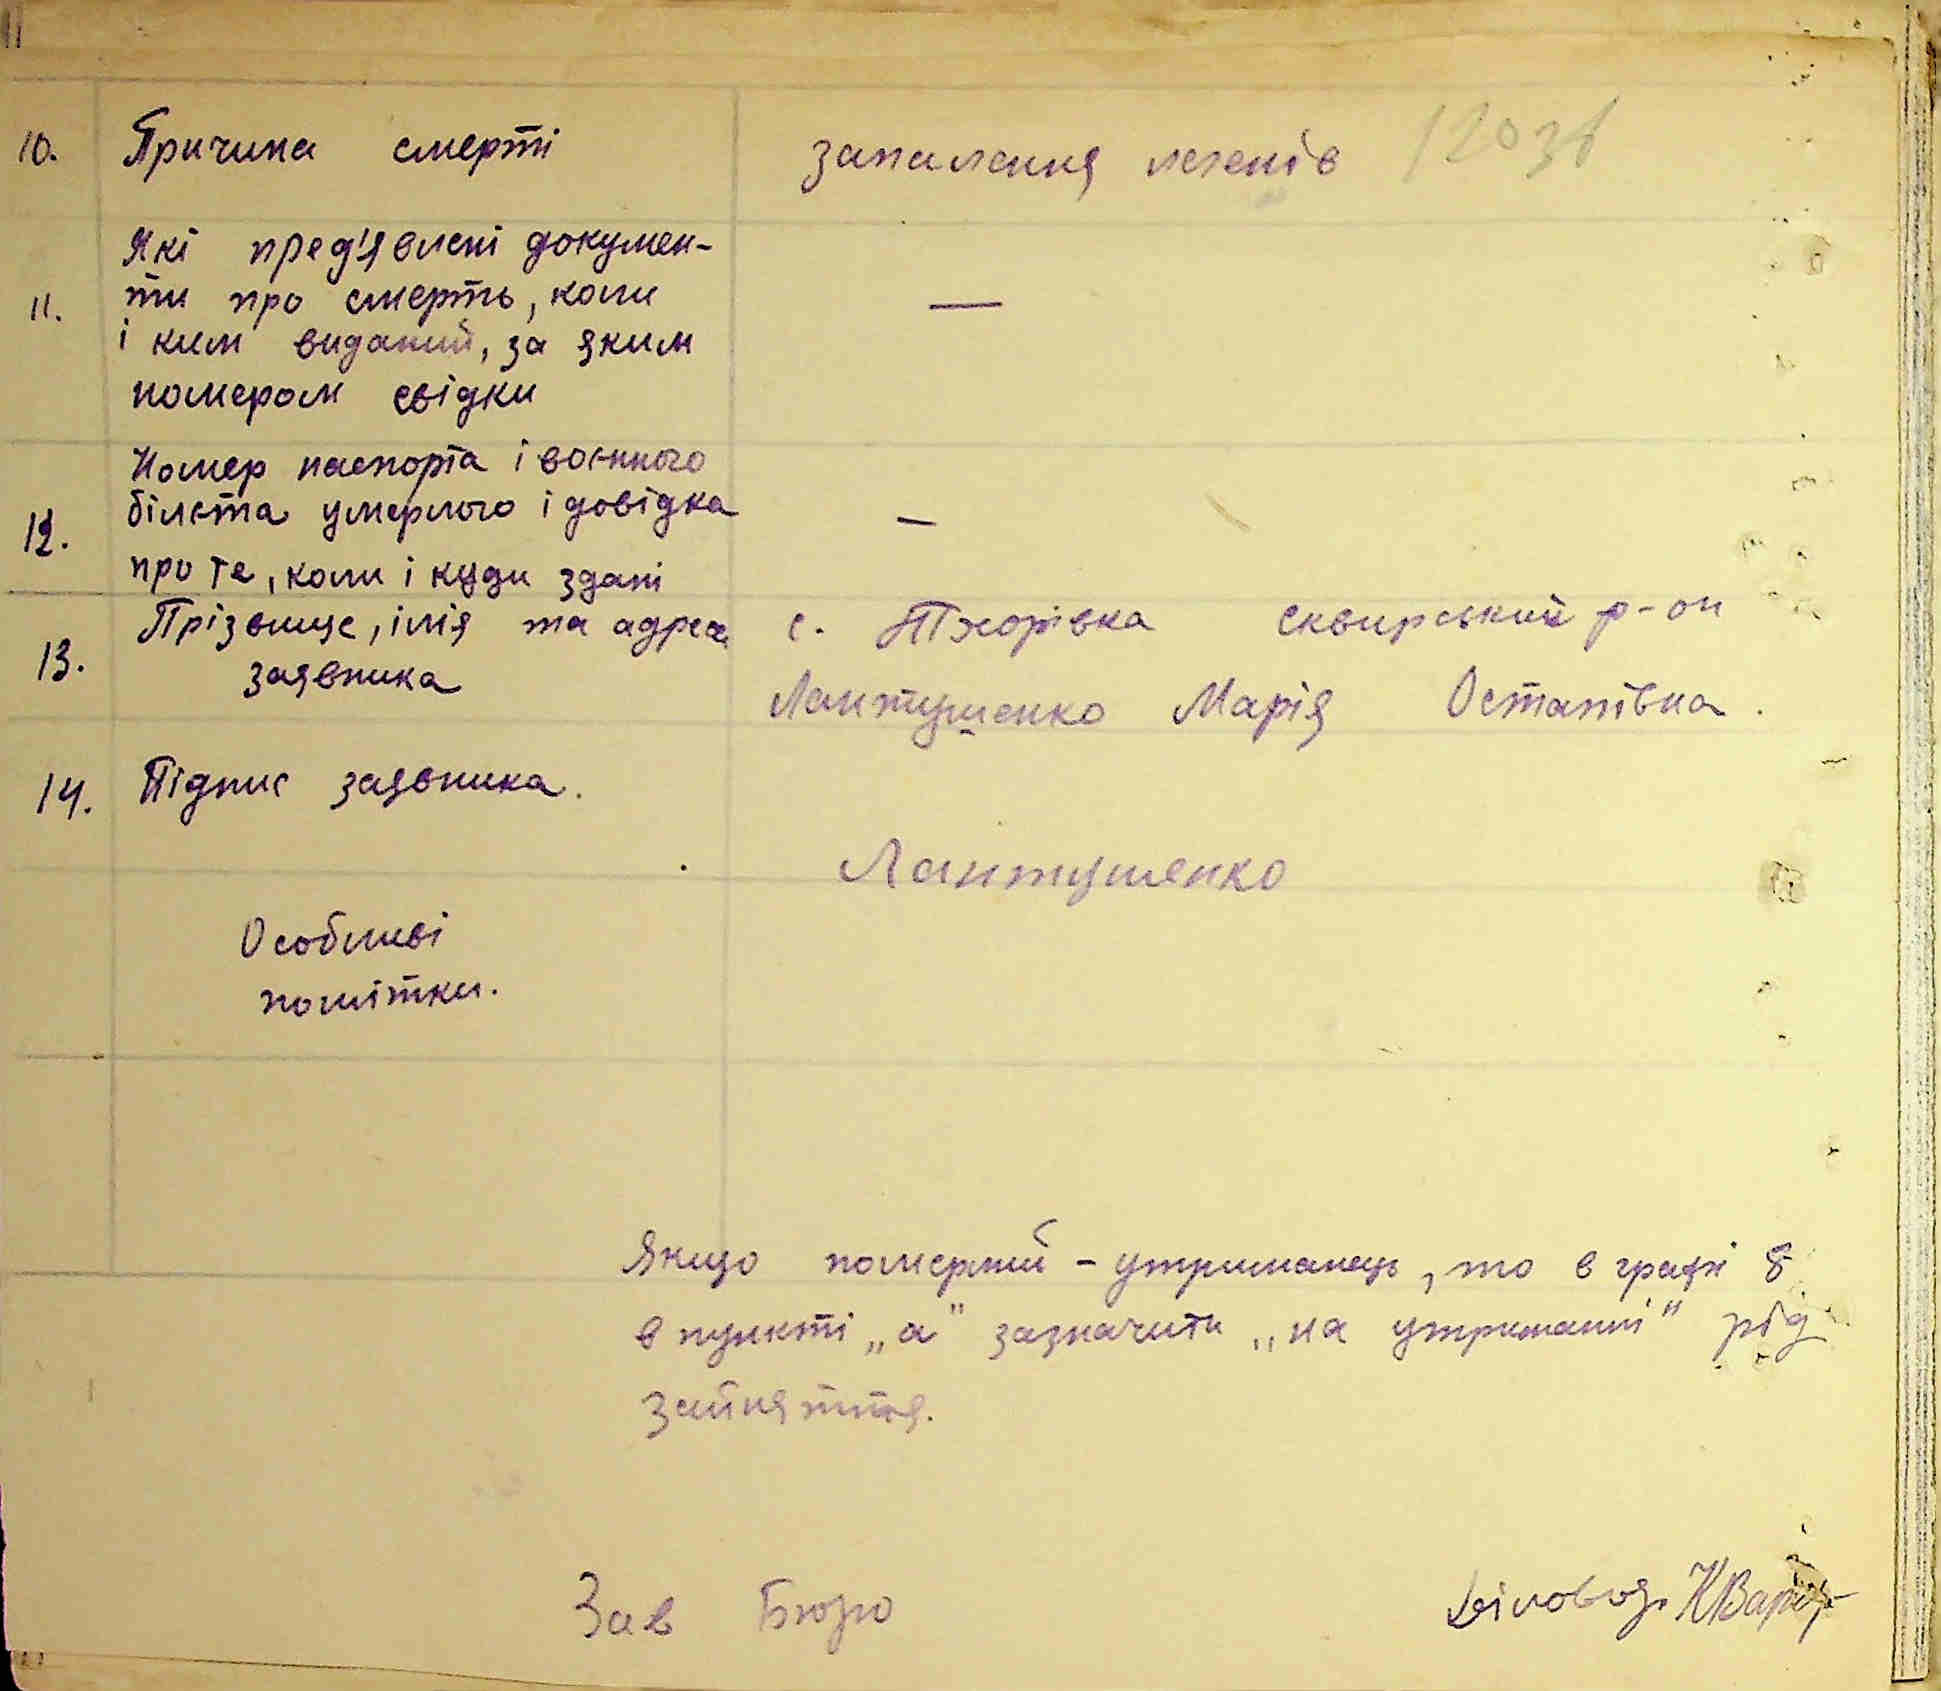 10. Причина смерті запалення легенів
Які пред'явлені докумен-
11. ти про смерть, коли —
і ким виданий, за яким
номером свідки
Номер паспорта і воєнного
12. білєта умерлого і довідка —
про те, коли і куди здані
13. Прізвище, імія та адреса с. Тхорівка Сквирський р-он
заявника Лантушенко Марія Остапівна.
14. Підпис заявника.
Лантушенко
Особливі
помітки.
Якщо померший - утриманець, то в графі 8
в пункті „а" зазначити „на утриманні" рід
зайняття.
Зав Бюро Діловод